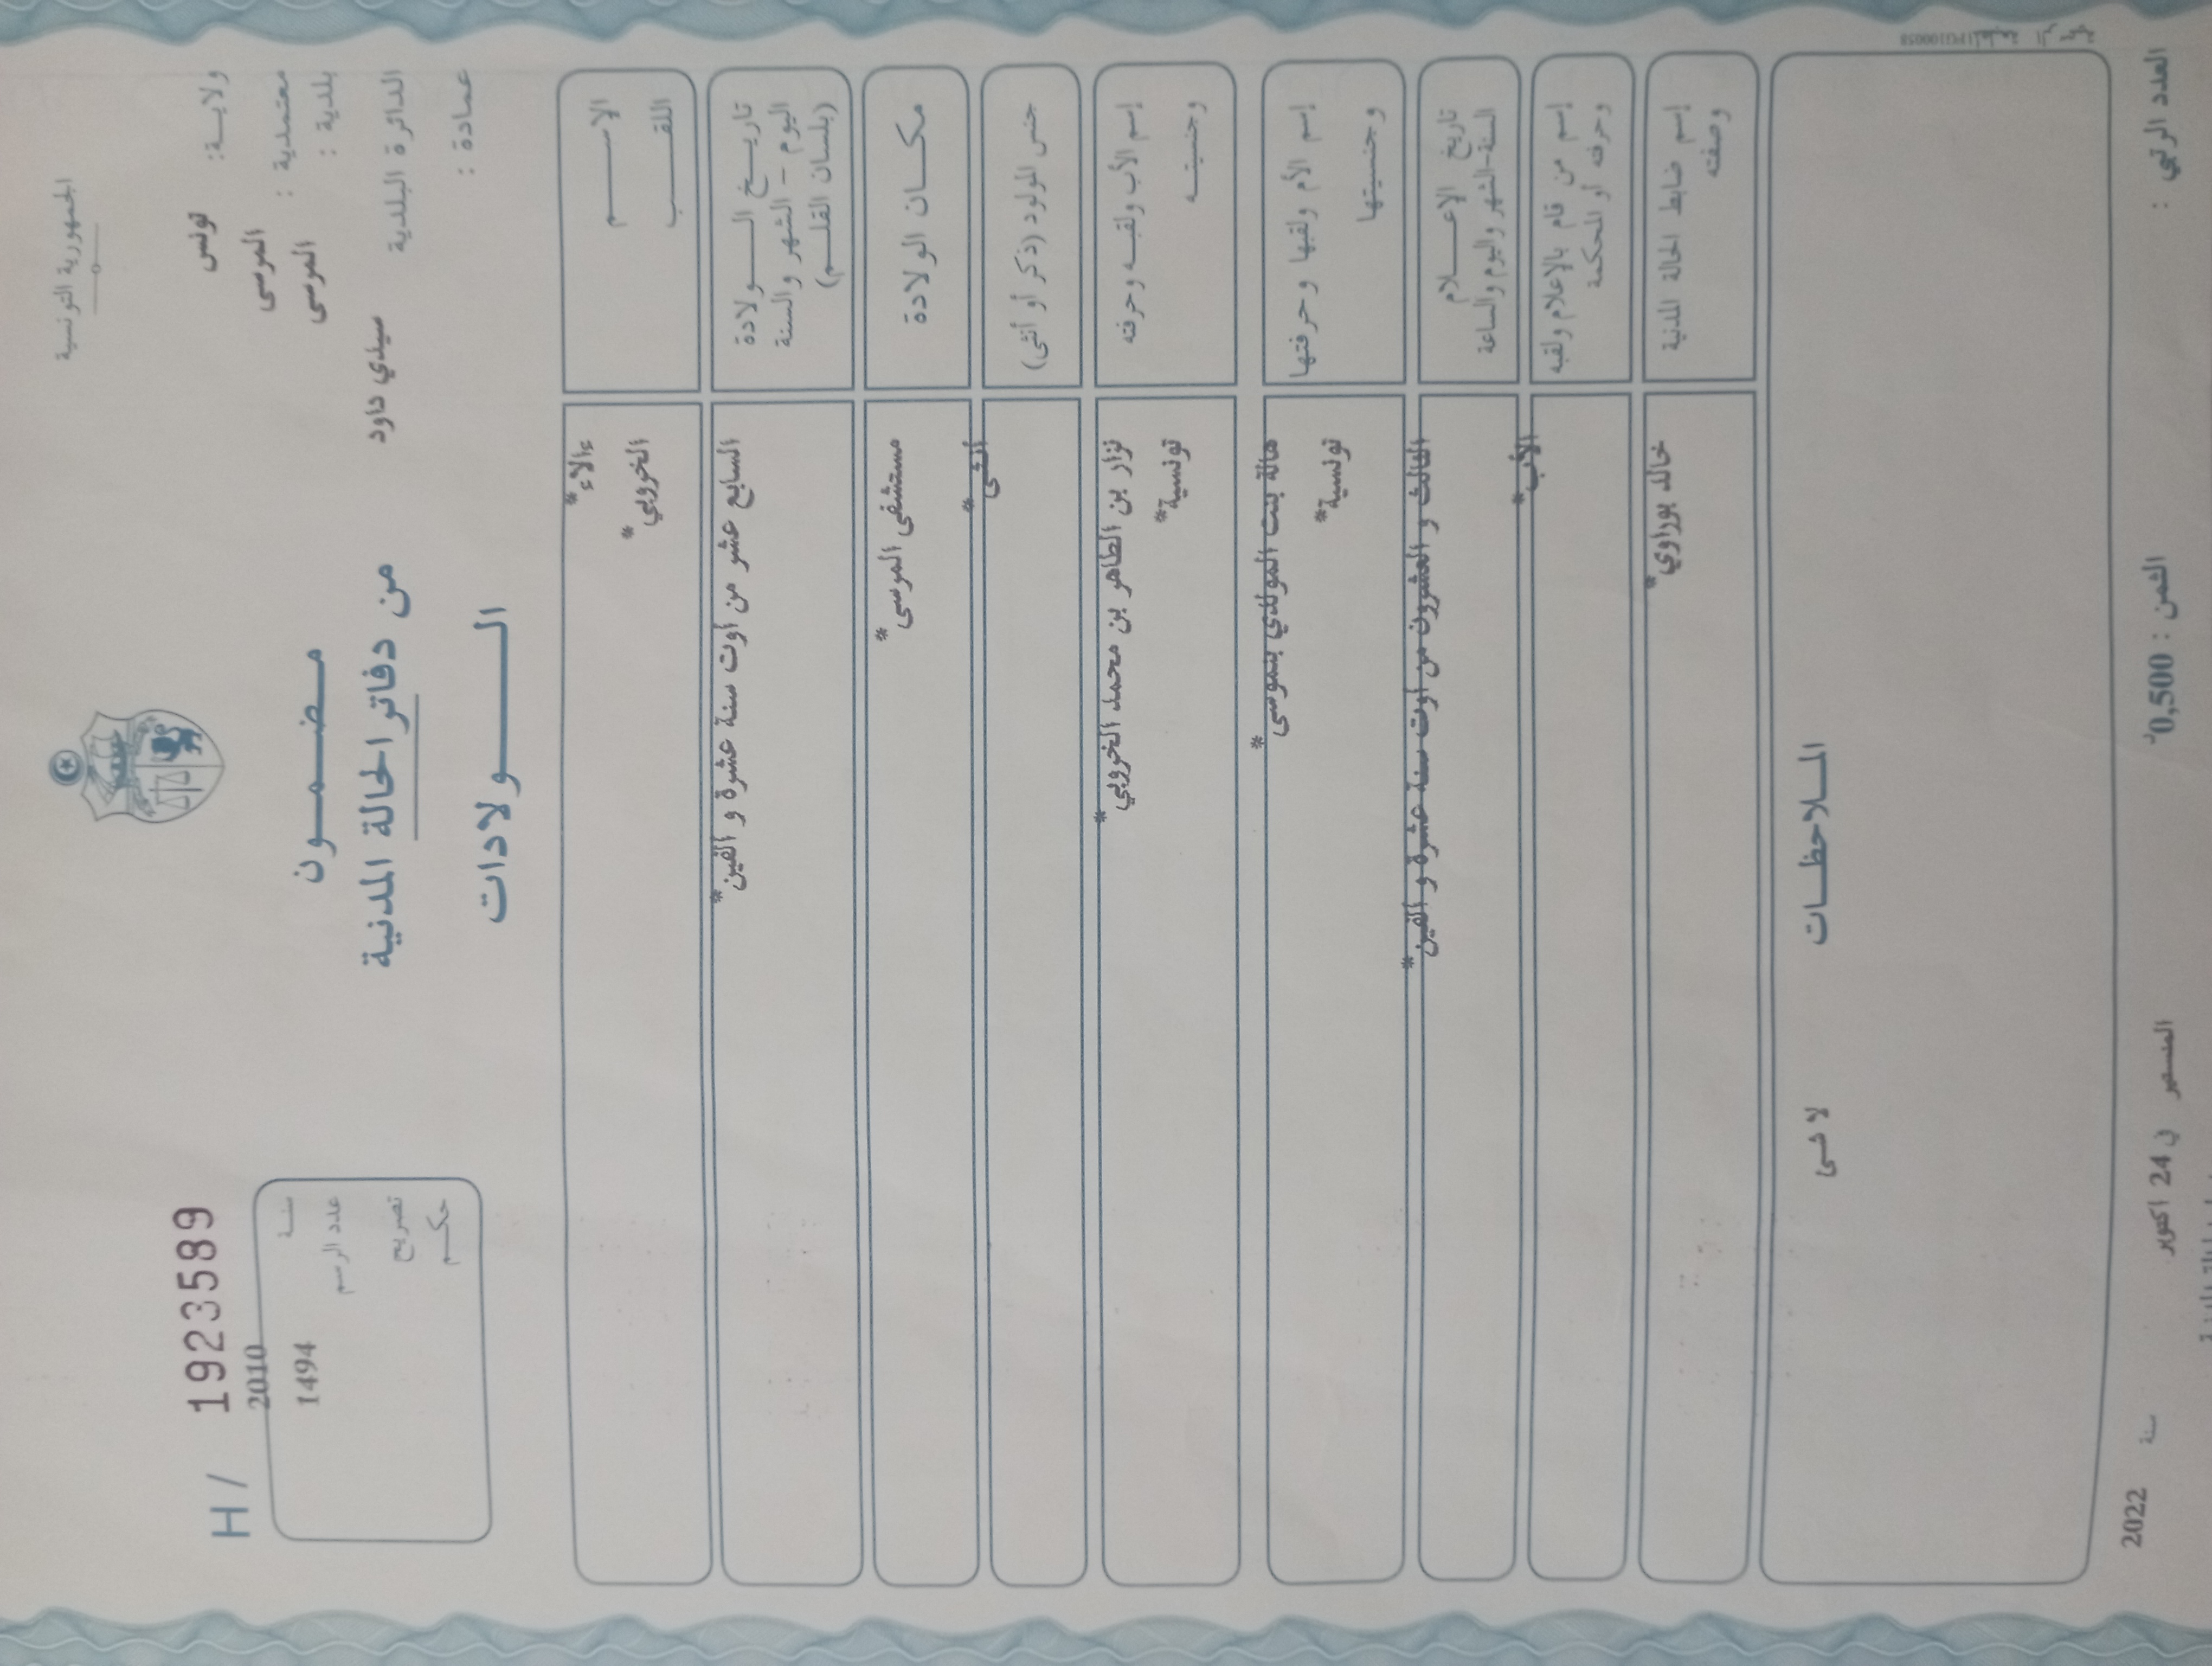 الجمهورية التونسية
ولايـة: تونس
معتمدية : المرسى
بلدية : المرسى
الدائرة البلدية سيدي داود
عمادة :
مضمون
من دفاتر الحالة المدنية
الولادات
H / 1923589
سنة 2010
عدد الرسم 1494
تصريح
حكم
الاسم ءالاء*
اللقب الخروبي*
تاريخ الولادة
اليوم - الشهر والسنة
(بلسان القلم)
السابع عشر من أوت سنة عشرة و ألفين*
مكان الولادة
مستشفى المرسى*
جنس المولود (ذكر أو أنثى)
أنثى*
إسم الأب ولقبه وحرفته
نزار بن الطاهر بن محمد الخروبي*
وجنسيته
تونسية*
إسم الأم ولقبها وحرفتها
هالة بنت المولدي بنموسى*
وجنسيتها
تونسية*
تاريخ الإعلام
السنة-الشهر واليوم والساعة
الثالث و العشرون من أوت سنة عشرة و ألفين*
إسم من قام بالإعلام ولقبه
وحرفته أو المحكمة
الأب*
إسم ضابط الحالة المدنية
وصفته
خالد بوراوي*
الملاحظات
لا شئ
العدد الرتبي :
الثمن : 0,500د
في 24 اكتوبر
سنة 2022